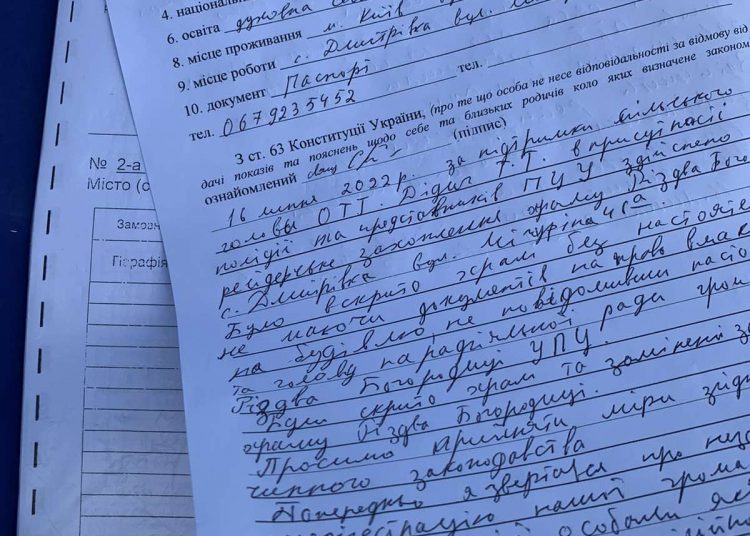 4. національ
6. освіта духовна
8. місце проживання м. Київ
9. місце роботи с. Дмитрівка вул.
10. документ Паспорт
тел. 0679235452 тел.
З ст. 63 Конституції України, (про те що особа не несе відповідальності за відмову від
дачі показів та пояснень щодо себе та близьких родичів коло яких визначене законом
ознайомлений (підпис)
16 липня 2022 р. за підтримки сільського
голови ОТГ. Дідич Т.Т. в присутності
поліції та представників ПЦУ здійснено
рейдерське захоплення храму Різдва Бого
с. Дмитрівка вул. Мічуріна
Було вскрито храм без настояте
не маючи документів на право влас
на будівлю, не повідомивши насто
та голову парафіяльної ради гром
Різдва Богородиці УПЦ.
Були скрито храм та замінені за
храму Різдва Богородиці.
Просимо прийняти міри згідн
чинного законодавства
Попередньо я звертався про неза
нашої грома
особами які
№ 2-а
Місто (с
Замовн
Гіографія